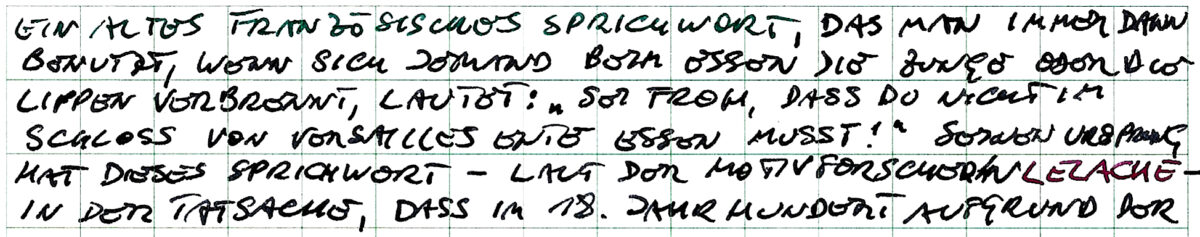 EIN ALTES FRANZÖSISCHES SPRICHWORT, DAS MAN IMMER DANN
BENUTZT, WENN SICH JEMAND BEIM ESSEN DIE ZUNGE ODER DIE
LIPPEN VERBRENNT, LAUTET: „SEI FROH, DASS DU NICHT IM
SCHLOSS VON VERSAILLES ENTE ESSEN MUSST!“ SEINEN URSPRUNG
HAT DIESES SPRICHWORT – LAUT DER MOTIVFORSCHERIN LEZACHE –
IN DER TATSACHE, DASS IM 18. JAHRHUNDERT AUFGRUND DER